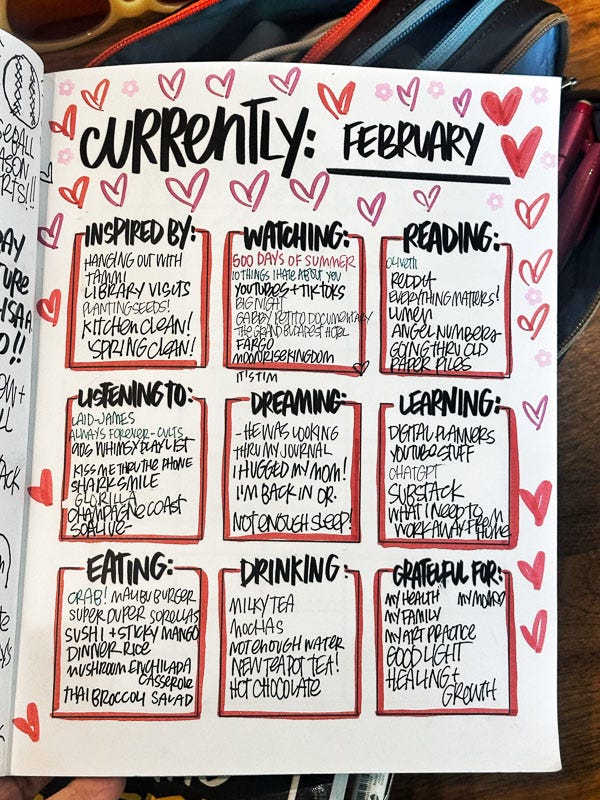 CURRENTLY: FEBRUARY
INSPIRED BY:
HANGING OUT WITH
TAMMI
LIBRARY VISITS
PLANTING SEEDS!
KITCHEN CLEAN!
SPRING CLEAN!
WATCHING:
500 DAYS OF SUMMER
10 THINGS I HATE ABOUT YOU
YOUTUBES + TIKTOKS
BIG NIGHT
GABBY PETITO DOCUMENTARY
THE GRAND BUDAPEST HOTEL
FARGO
MOONRISE KINGDOM
IT'S TIM
READING:
OLIVETTI
REDDIT
EVERYTHING MATTERS!
LUMEN
ANGEL NUMBERS
GOING THRU OLD
PAPER PILES
LISTENING TO:
LAID-JAMES
ALWAYS FOREVER-CULTS
90S WHIMSY PLAYLIST
KISS ME THRU THE PHONE
SHARK SMILE
GLORILLA
CHAMPAGNE COAST
SOALIVE
DREAMING:
-HE WAS LOOKING
THRU MY JOURNAL
I HUGGED MY MOM!
I'M BACK IN OR.
NOT ENOUGH SLEEP!
LEARNING:
DIGITAL PLANNERS
YOUTUBE STUFF
CHATGPT
SUBSTACK
WHAT I NEED TO
WORK AWAY FROM
HOME
EATING:
CRAB! MALIBU BURGER
SUPER DUPER SOROLLAS
SUSHI + STICKY MANGO
DINNER RICE
MUSHROOM ENCHILADA
CASSEROLE
THAI BROCCOLI SALAD
DRINKING:
MILKY TEA
MOCHAS
NOT ENOUGH WATER
NEW TEAPOT TEA!
HOT CHOCOLATE
GRATEFUL FOR:
MY HEALTH MY MOM
MY FAMILY
MY ART PRACTICE
GOOD LIGHT
HEALING +
GROWTH